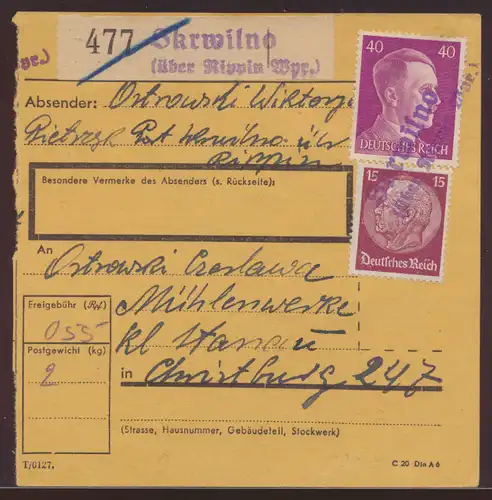 477 Skrwilno
(über Rippin Wpr.)
pr.)
Absender: Ostrowski Wiktorya
Pietrzyk Post Skrwilno über
Rippin
Besondere Vermerke des Absenders (s. Rückseite):
40 40
DEUTSCHES REICH
15 15
Deutsches Reich
Skrwilno
An
Ostrowski Czeslawa
Mühlenwerke
Kl Stanau
in Christburg 247
Freigebühr (Rpf)
055
Postgewicht (kg)
2
(Strasse, Hausnummer, Gebäudeteil, Stockwerk)
T/0127. C 20 Din A 6